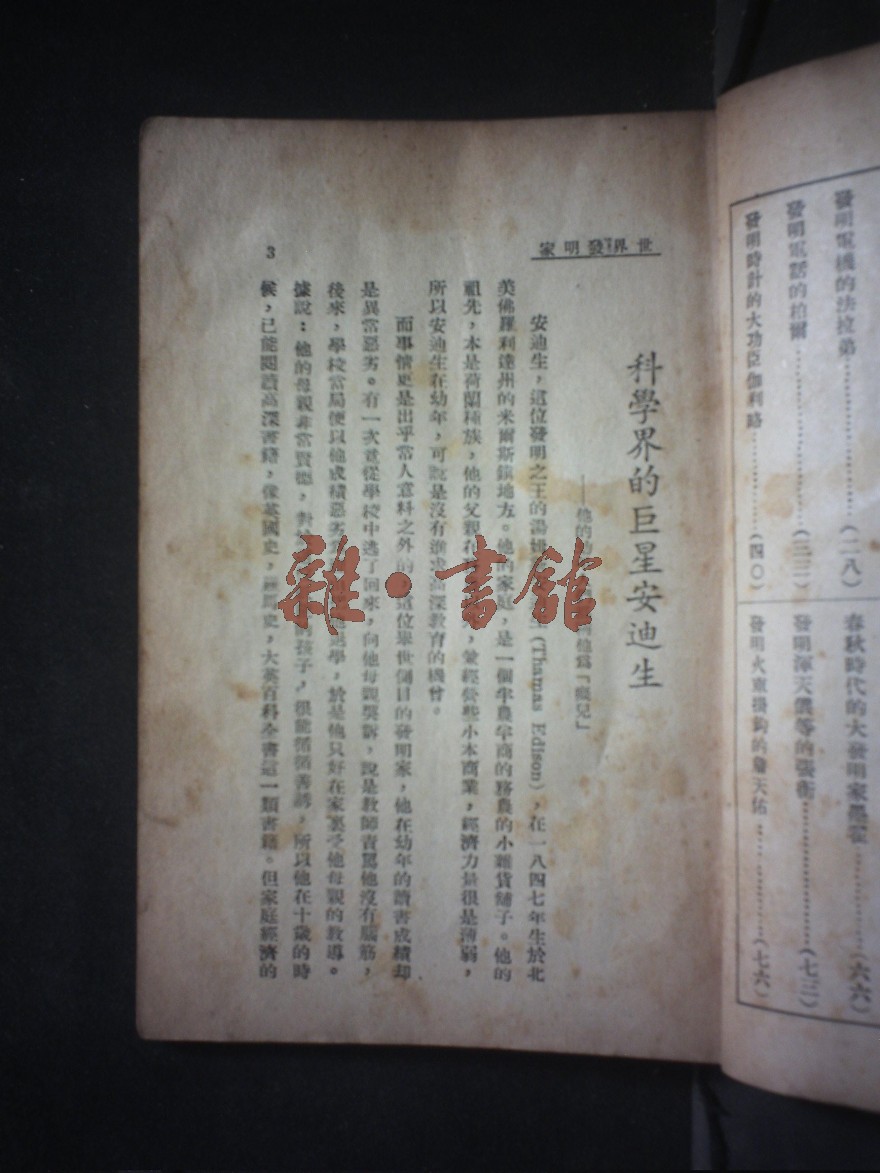 發明電機的法拉第………………(二八)
發明電話的柏爾………………(三三)
發明時計的大功臣伽利略…………(四〇)
春秋時代的大發明家墨翟………(六六)
發明渾天儀等的張衡…………(七三)
發明火車掛鈎的詹天佑…………(七六)
世界發明家
科學界的巨星安迪生
——他的 他爲「癡兒」
安迪生,這位發明之王的湯姆 生(Thamas Edison),在一八四七年生於北
美佛羅利達州的米爾斯鎮地方。他的家庭,是一個半農半商的務農的小雜貨舖子。他的
祖先,本是荷蘭種族,他的父親在 ,兼經營些小本商業,經濟力量很是薄弱,
所以安迪生在幼年,可說是沒有進求高深教育的機會。
而事情更是出乎常人意料之外的 這位舉世側目的發明家,他在幼年的讀書成績却
是異常惡劣。有一次竟從學校中逃了回來,向他母親哭訴,說是教師責罵他沒有腦筋,
後來,學校當局便以他成績惡劣 他退學,於是他只好在家裏受他母親的教導。
據說:他的母親非常賢慧,對 孩子,很能循循善誘,所以他在十歲的時
候,已能閱讀高深書籍,像英國史,羅馬史,大英百科全書這一類書籍。但家庭經濟的
3
雜·書館